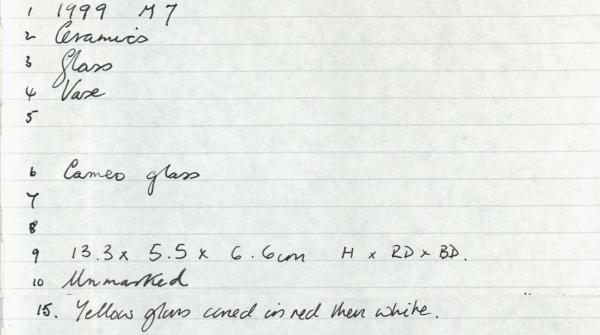 1 1999 M 7
2 Ceramics
3 Glass
4 Vase
5
6 Cameo glass
7
8
9 13.3 x 5.5 x 6.6cm H x RD x BD.
10 Unmarked
15. Yellow glass cased in red then white.